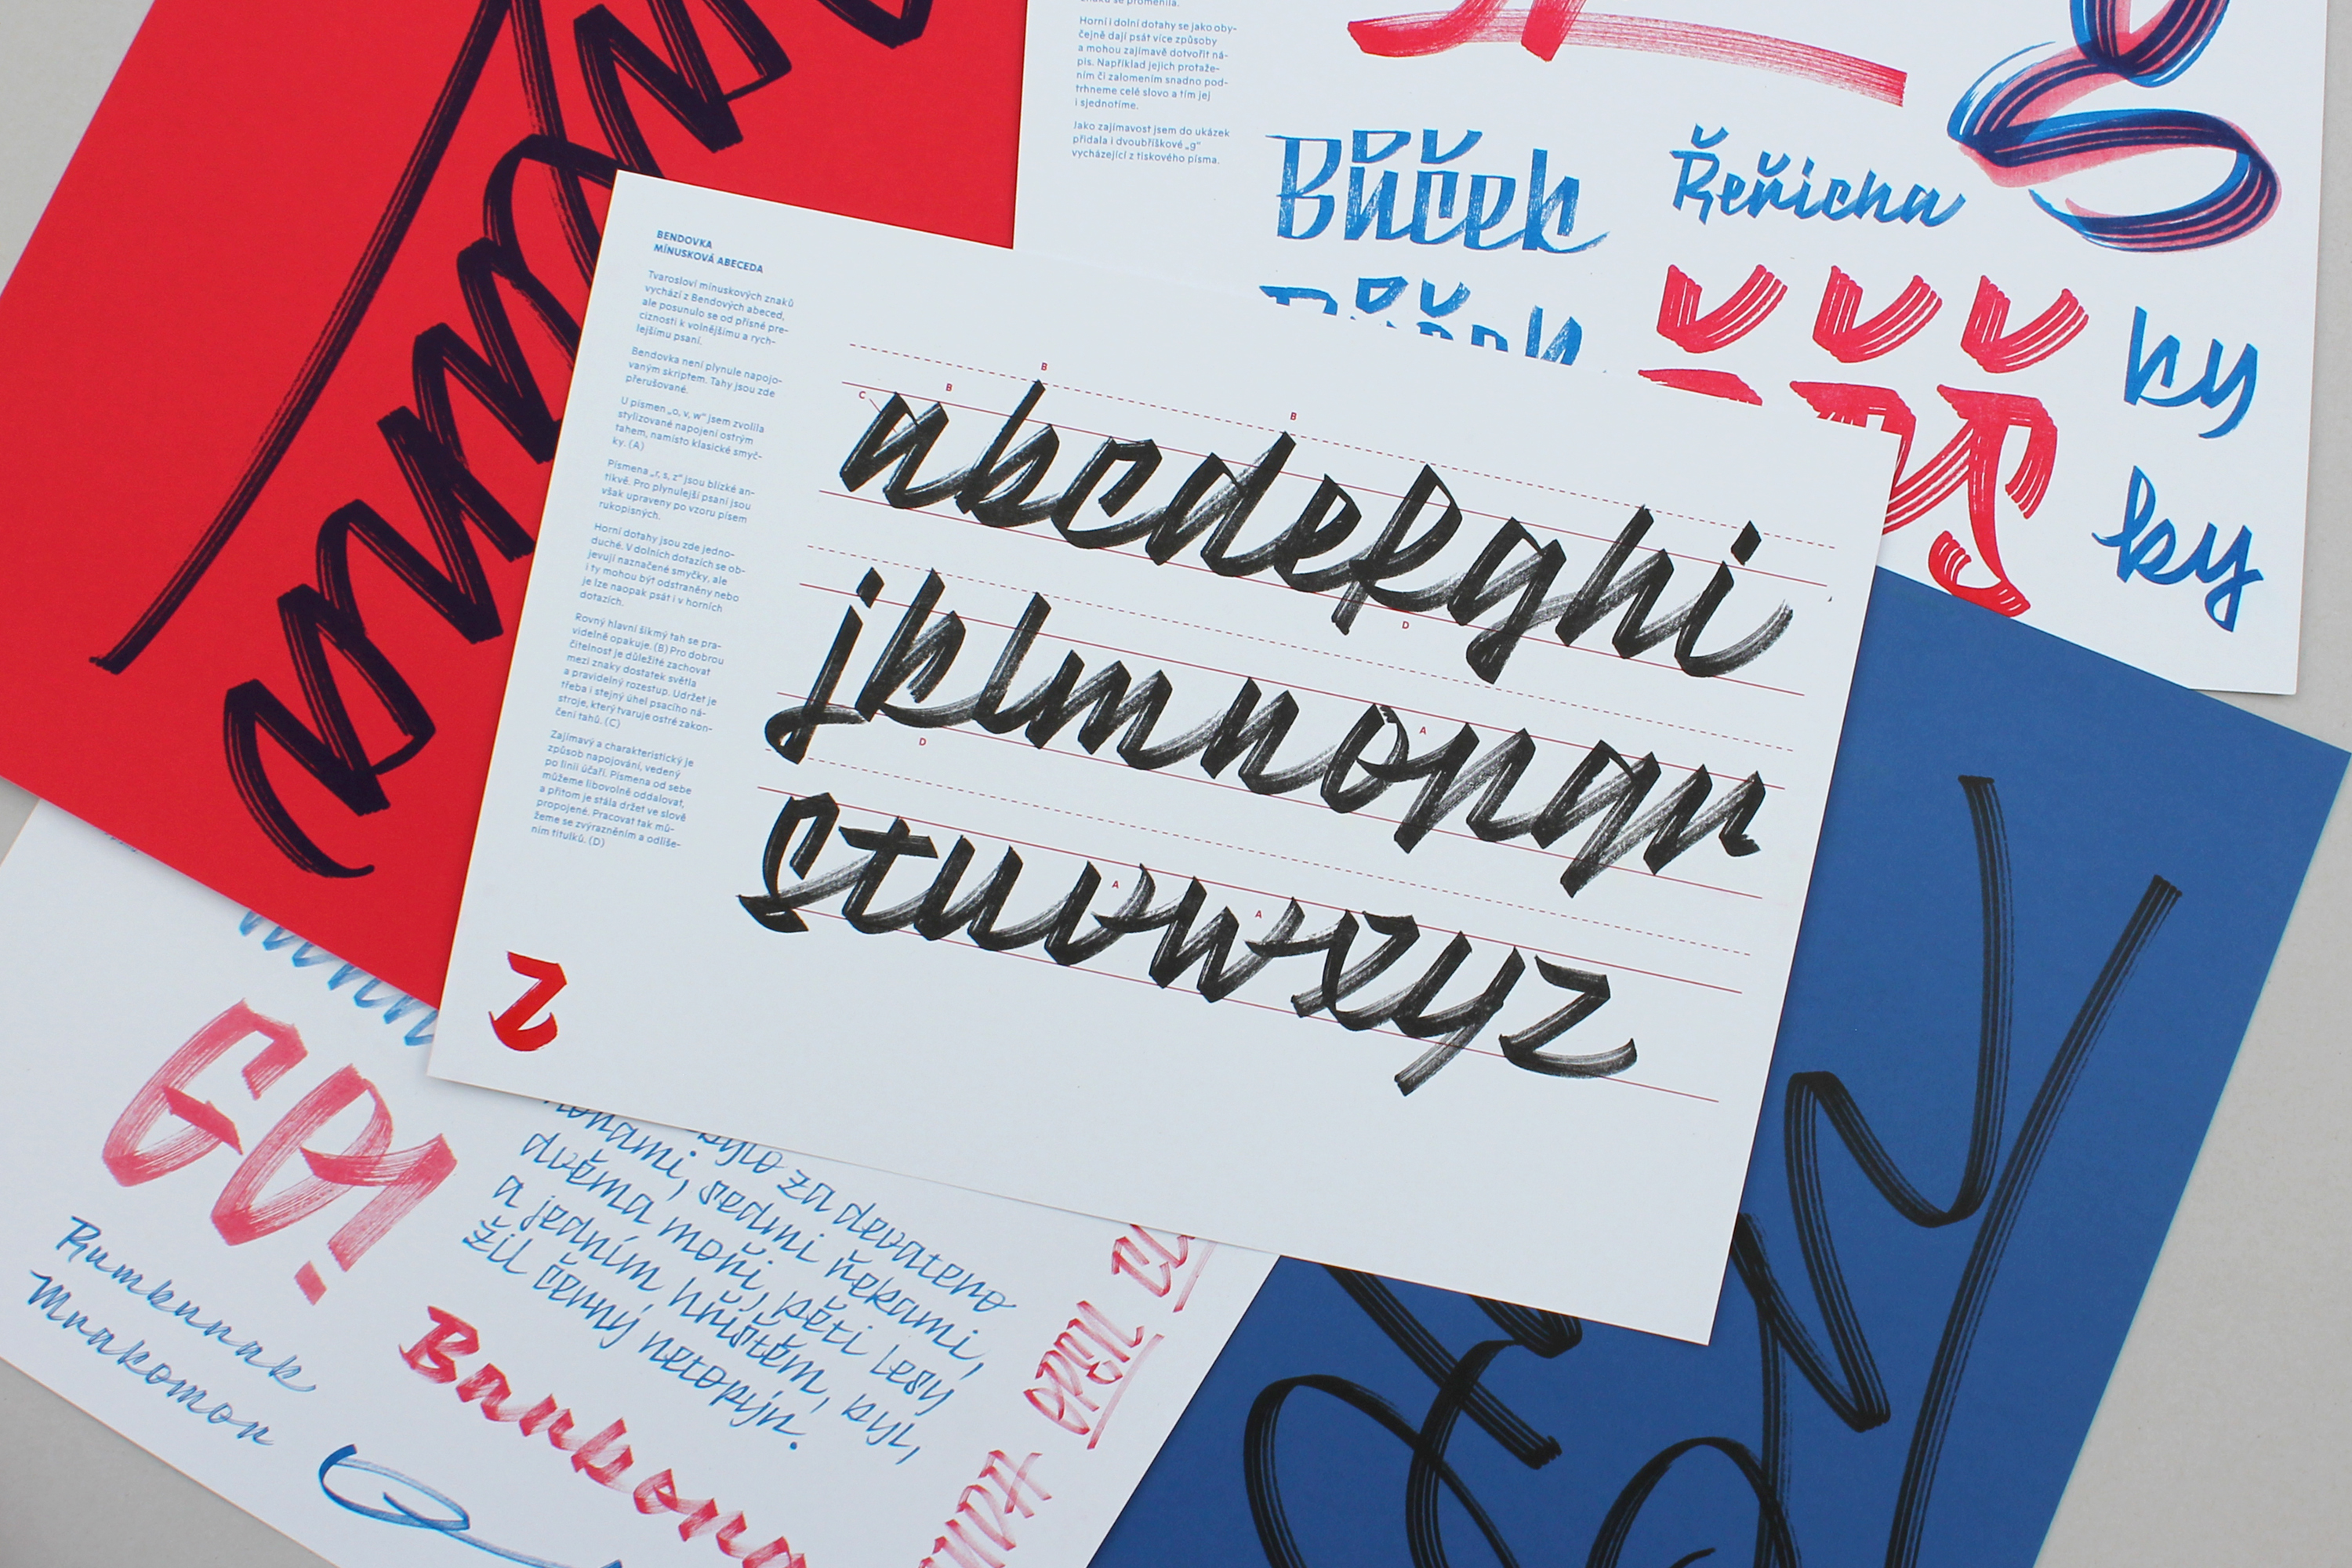 Horní i dolní dotahy se jako oby-
čejně dají psát více způsoby
a mohou zajímavě dotvořit ná-
pis. Například jejich protaže-
ním či zalomením snadno pod-
trhneme celé slovo a tím jej
i sjednotíme.
Jako zajímavost jsem do ukázek
přidala i dvoubříškové „g“
vycházející z tiskového písma.
Bůček
Řeřicha
ky
ky
BENDOVKA
MÍNUSKOVÁ ABECEDA
Tvarosloví mínuskových znaků
vychází z Bendových abeced,
ale posunulo se od přísné pre-
ciznosti k volnějšímu a rych-
lejšímu psaní.
Bendovka není plynule napojo-
vaným skriptem. Tahy jsou zde
přerušované.
U písmen „o, v, w“ jsem zvolila
stylizované napojení ostrým
tahem, namísto klasické smyč-
ky. (A)
Písmena „r, s, z“ jsou blízké an-
tikvě. Pro plynulejší psaní jsou
však upraveny po vzoru písem
rukopisných.
Horní dotahy jsou zde jedno-
duché. V dolních dotazích se ob-
jevují naznačené smyčky, ale
i ty mohou být odstraněny nebo
je lze naopak psát i v horních
dotazích.
Rovný hlavní šikmý tah se pra-
videlně opakuje. (B) Pro dobrou
čitelnost je důležité zachovat
mezi znaky dostatek světla
a pravidelný rozestup. Udržet je
třeba i stejný úhel psacího ná-
stroje, který tvaruje ostré zakon-
čení tahů. (C)
Zajímavý a charakteristický je
způsob napojování, vedený
po linii účaří. Písmena od sebe
můžeme libovolně oddalovat,
a přitom je stála držet ve slově
propojené. Pracovat tak mů-
žeme se zvýrazněním a odliše-
ním titulků. (D)
C B B B
abcdefghi
D
jklmnopqr
D A
stuvwxyz
A A
z
GO!
Rumkurak
Mrakomor
bylo za devatero
horami, sedmi řekami,
dvěma moři, pěti lesy
a jedním hřištěm, byl,
žil černý netopýr.
BREIL